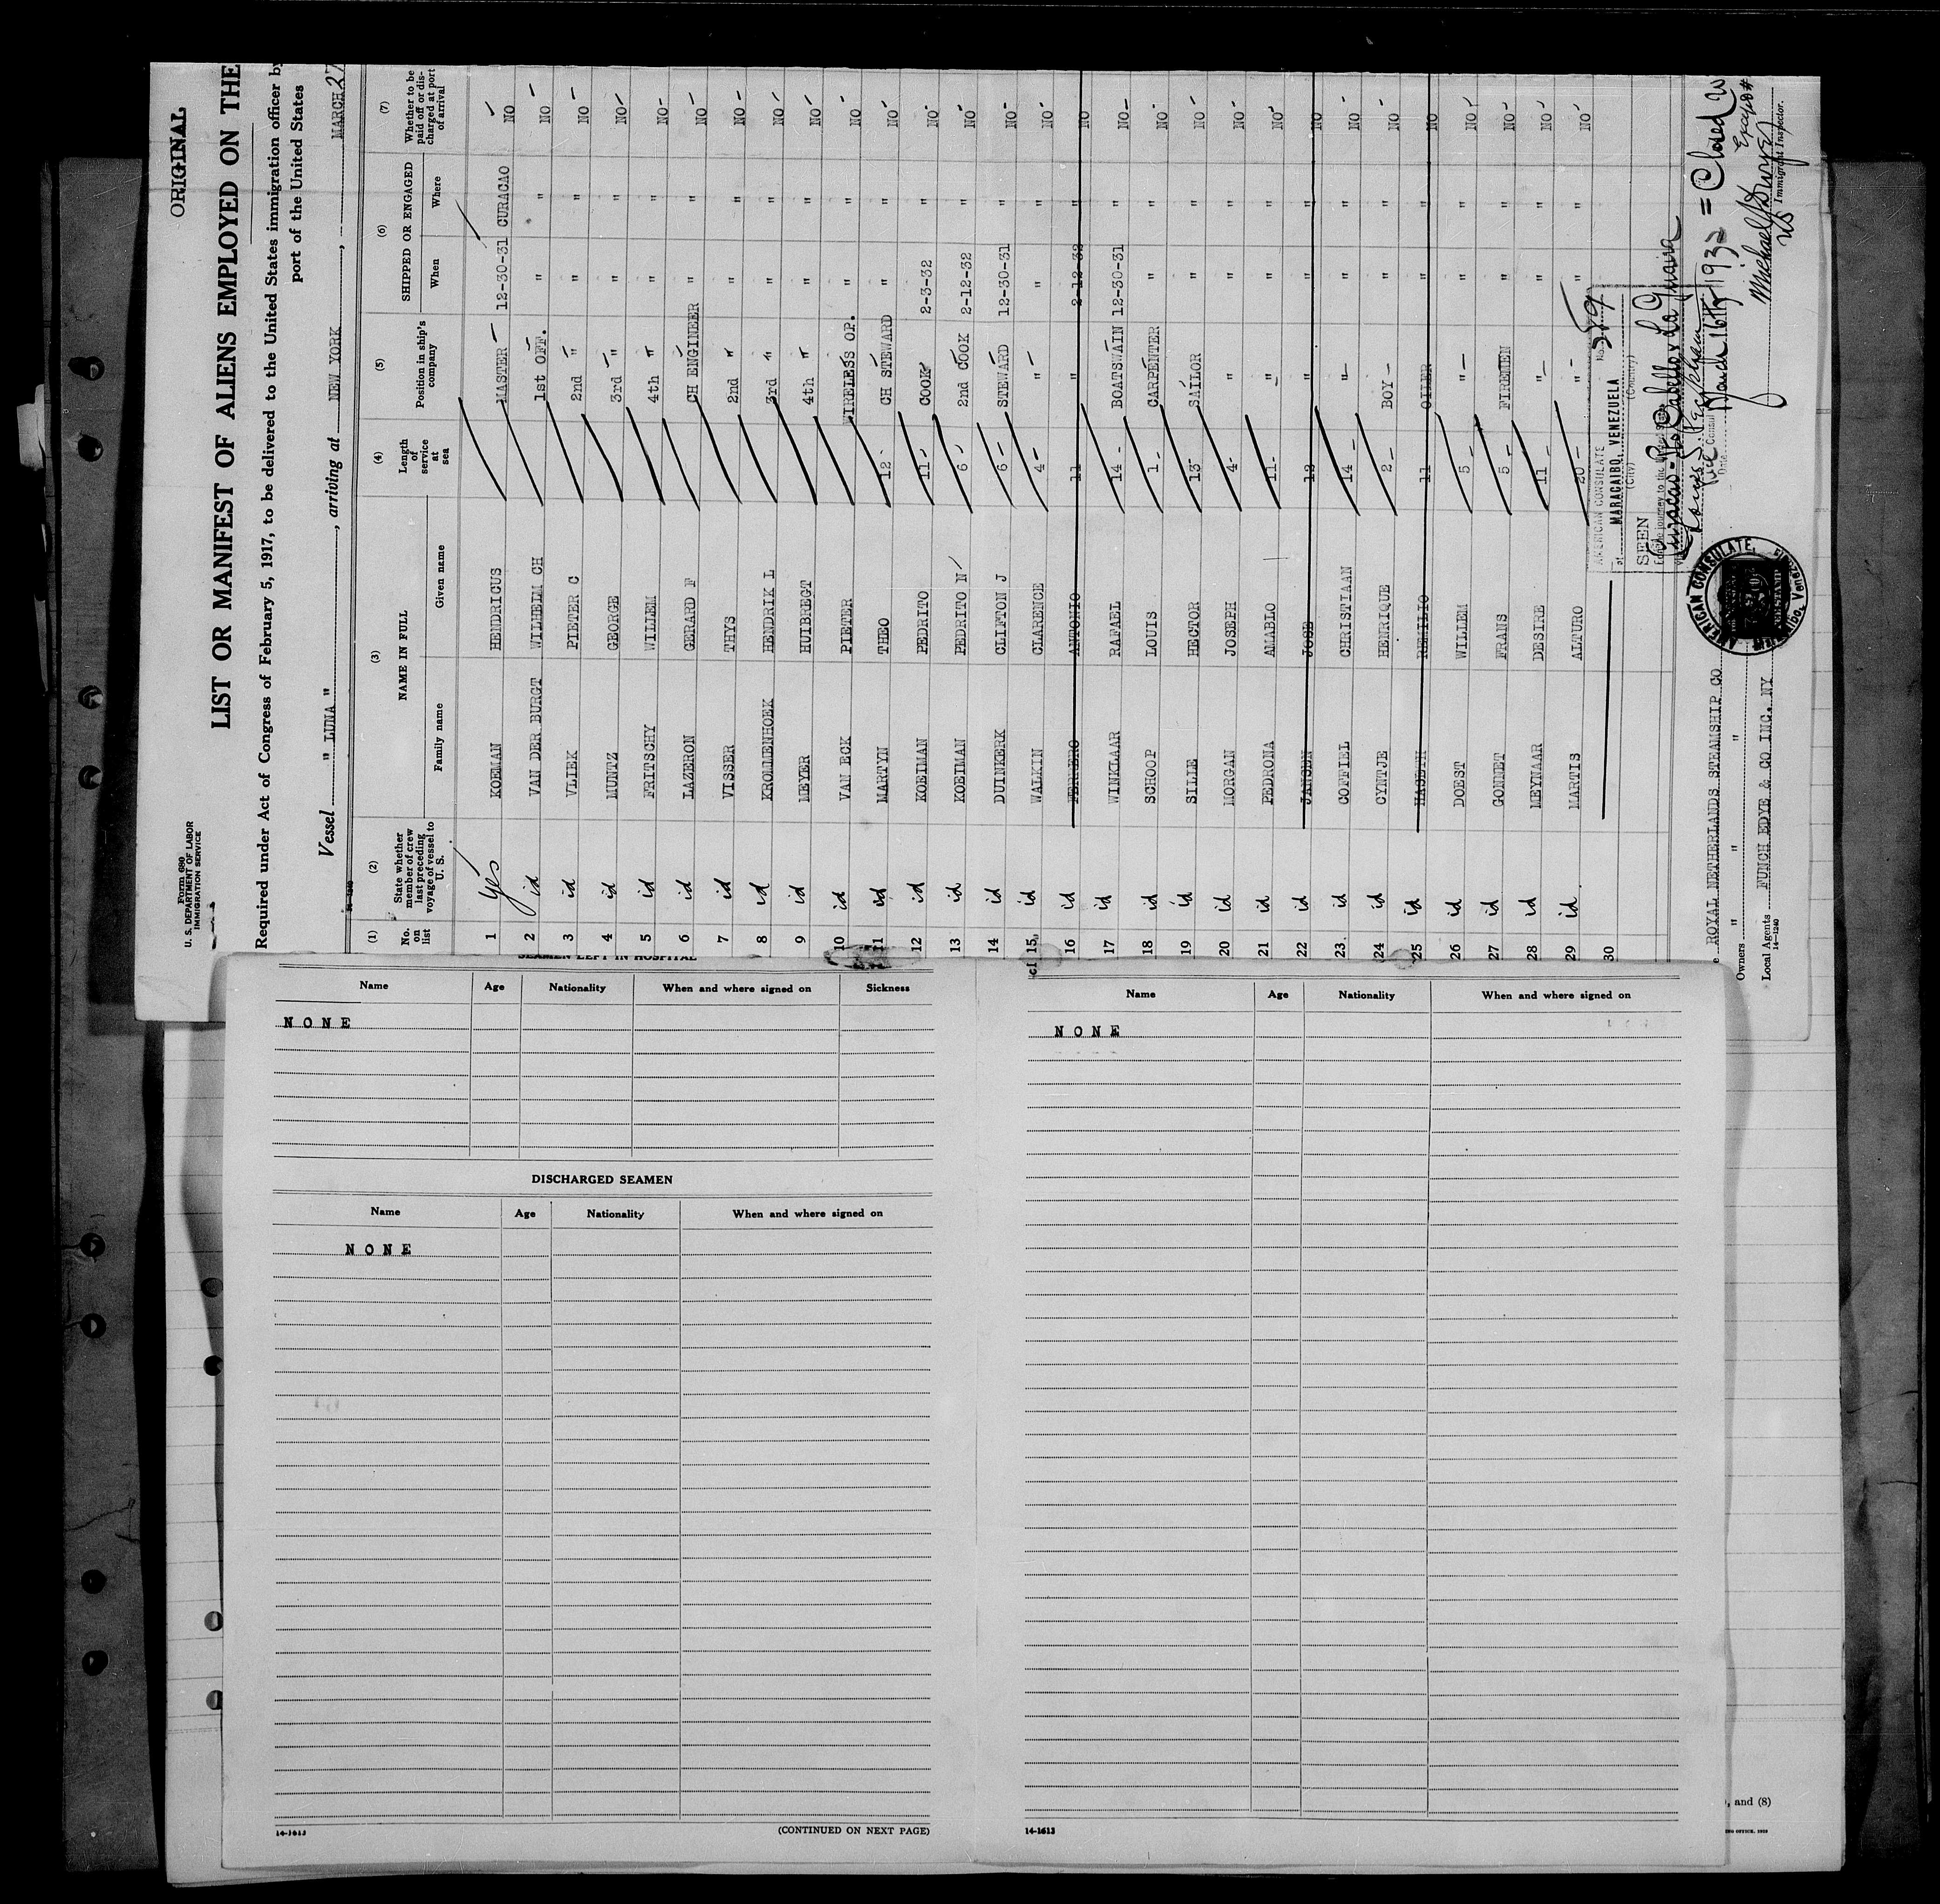 ORIGINAL
Form 680
U. S. DEPARTMENT OF LABOR
IMMIGRATION SERVICE
LIST OR MANIFEST OF ALIENS EMPLOYED ON THE
Required under Act of Congress of February 5, 1917, to be delivered to the United States immigration officer by
port of the United States
Vessel " LUNA ", arriving at NEW YORK, MARCH 27
(1) (2) (3) (4) (5) (6) (7)
No. on list State whether member of crew last preceding voyage of vessel to U. S. NAME IN FULL Length of service at sea Position in ship's company SHIPPED OR ENGAGED Whether to be paid off or discharged at port of arrival
Family name Given name When Where
1 yes KOEMAN HENDRICUS MASTER 12-30-31 CURACAO NO
2 id VAN DER BURGT WILHELM CH 1st OFF. " " NO
3 id VLIEK PIETER C 2nd " " " NO
4 id MUNTZ GEORGE 3rd " " " NO
5 id FRITSCHY WILLEM 4th " " " NO
6 id LAZERON GERARD F CH ENGINEER " " NO
7 id VISSER THYS 2nd " " " NO
8 id KROMMENHOEK HENDRIK L 3rd " " " NO
9 id MEYER HUIBREGT 4th " " " NO
10 id VAN ECK PIETER WIRELESS OP. " " NO
11 id MARTYN THEO 12 CH STEWARD " " NO
12 id KOEIMAN PEDRITO 11 COOK 2-3-32 " NO
13 id KOEIMAN PEDRITO N 6 2nd COOK 2-12-32 " NO
14 id DUINKERK CLIFTON J 6 STEWARD 12-30-31 " NO
15 id WALKIN CLARENCE 4 " " " NO
16 id FERRERO ANTONIO 11 " 2-12-32 " NO
17 id WINKLAAR RAFAEL 14 BOATSWAIN 12-30-31 " NO
18 id SCHOOP LOUIS 1 CARPENTER " " NO
19 id SILLE HECTOR 13 SAILOR " " NO
20 id MORGAN JOSEPH 4 " " " NO
21 id PEDRONA AMABLO 11 " " " NO
22 id JANSEN JOSE 12 " " " NO
23 id COFFIEL CHRISTIAAN 14 " " " NO
24 id CYNTJE HENRIQUE 2 BOY " " NO
25 id HASETH REMILIO 11 OILER " " NO
26 id DOEST WILLEM 5 " " " NO
27 id GONNET FRANS 5 FIREMEN " " NO
28 id MEYNAAR DESIRE 11 " " " NO
29 id MARTIS ALTURO 20 " " " NO
30
AMERICAN CONSULATE No. 559
at MARACAIBO, VENEZUELA
(City) (Country)
SEEN
For the journey to the United States
via Curacao - Pto Cabello y La Guaira
Vice Consul
Date March 16th 1932 = Closed W
ROYAL NETHERLANDS STEAMSHIP CO
Owners " " "
Local Agents FUNCH EDYE & CO INC. NY
14-1240
AMERICAN CONSULATE,
Immigrant Inspector.
SEAMEN LEFT IN HOSPITAL
Name Age Nationality When and where signed on Sickness
NONE
DISCHARGED SEAMEN
Name Age Nationality When and where signed on
NONE
14-1613
(CONTINUED ON NEXT PAGE)
Name Age Nationality When and where signed on
NONE
14-1613
, and (8)